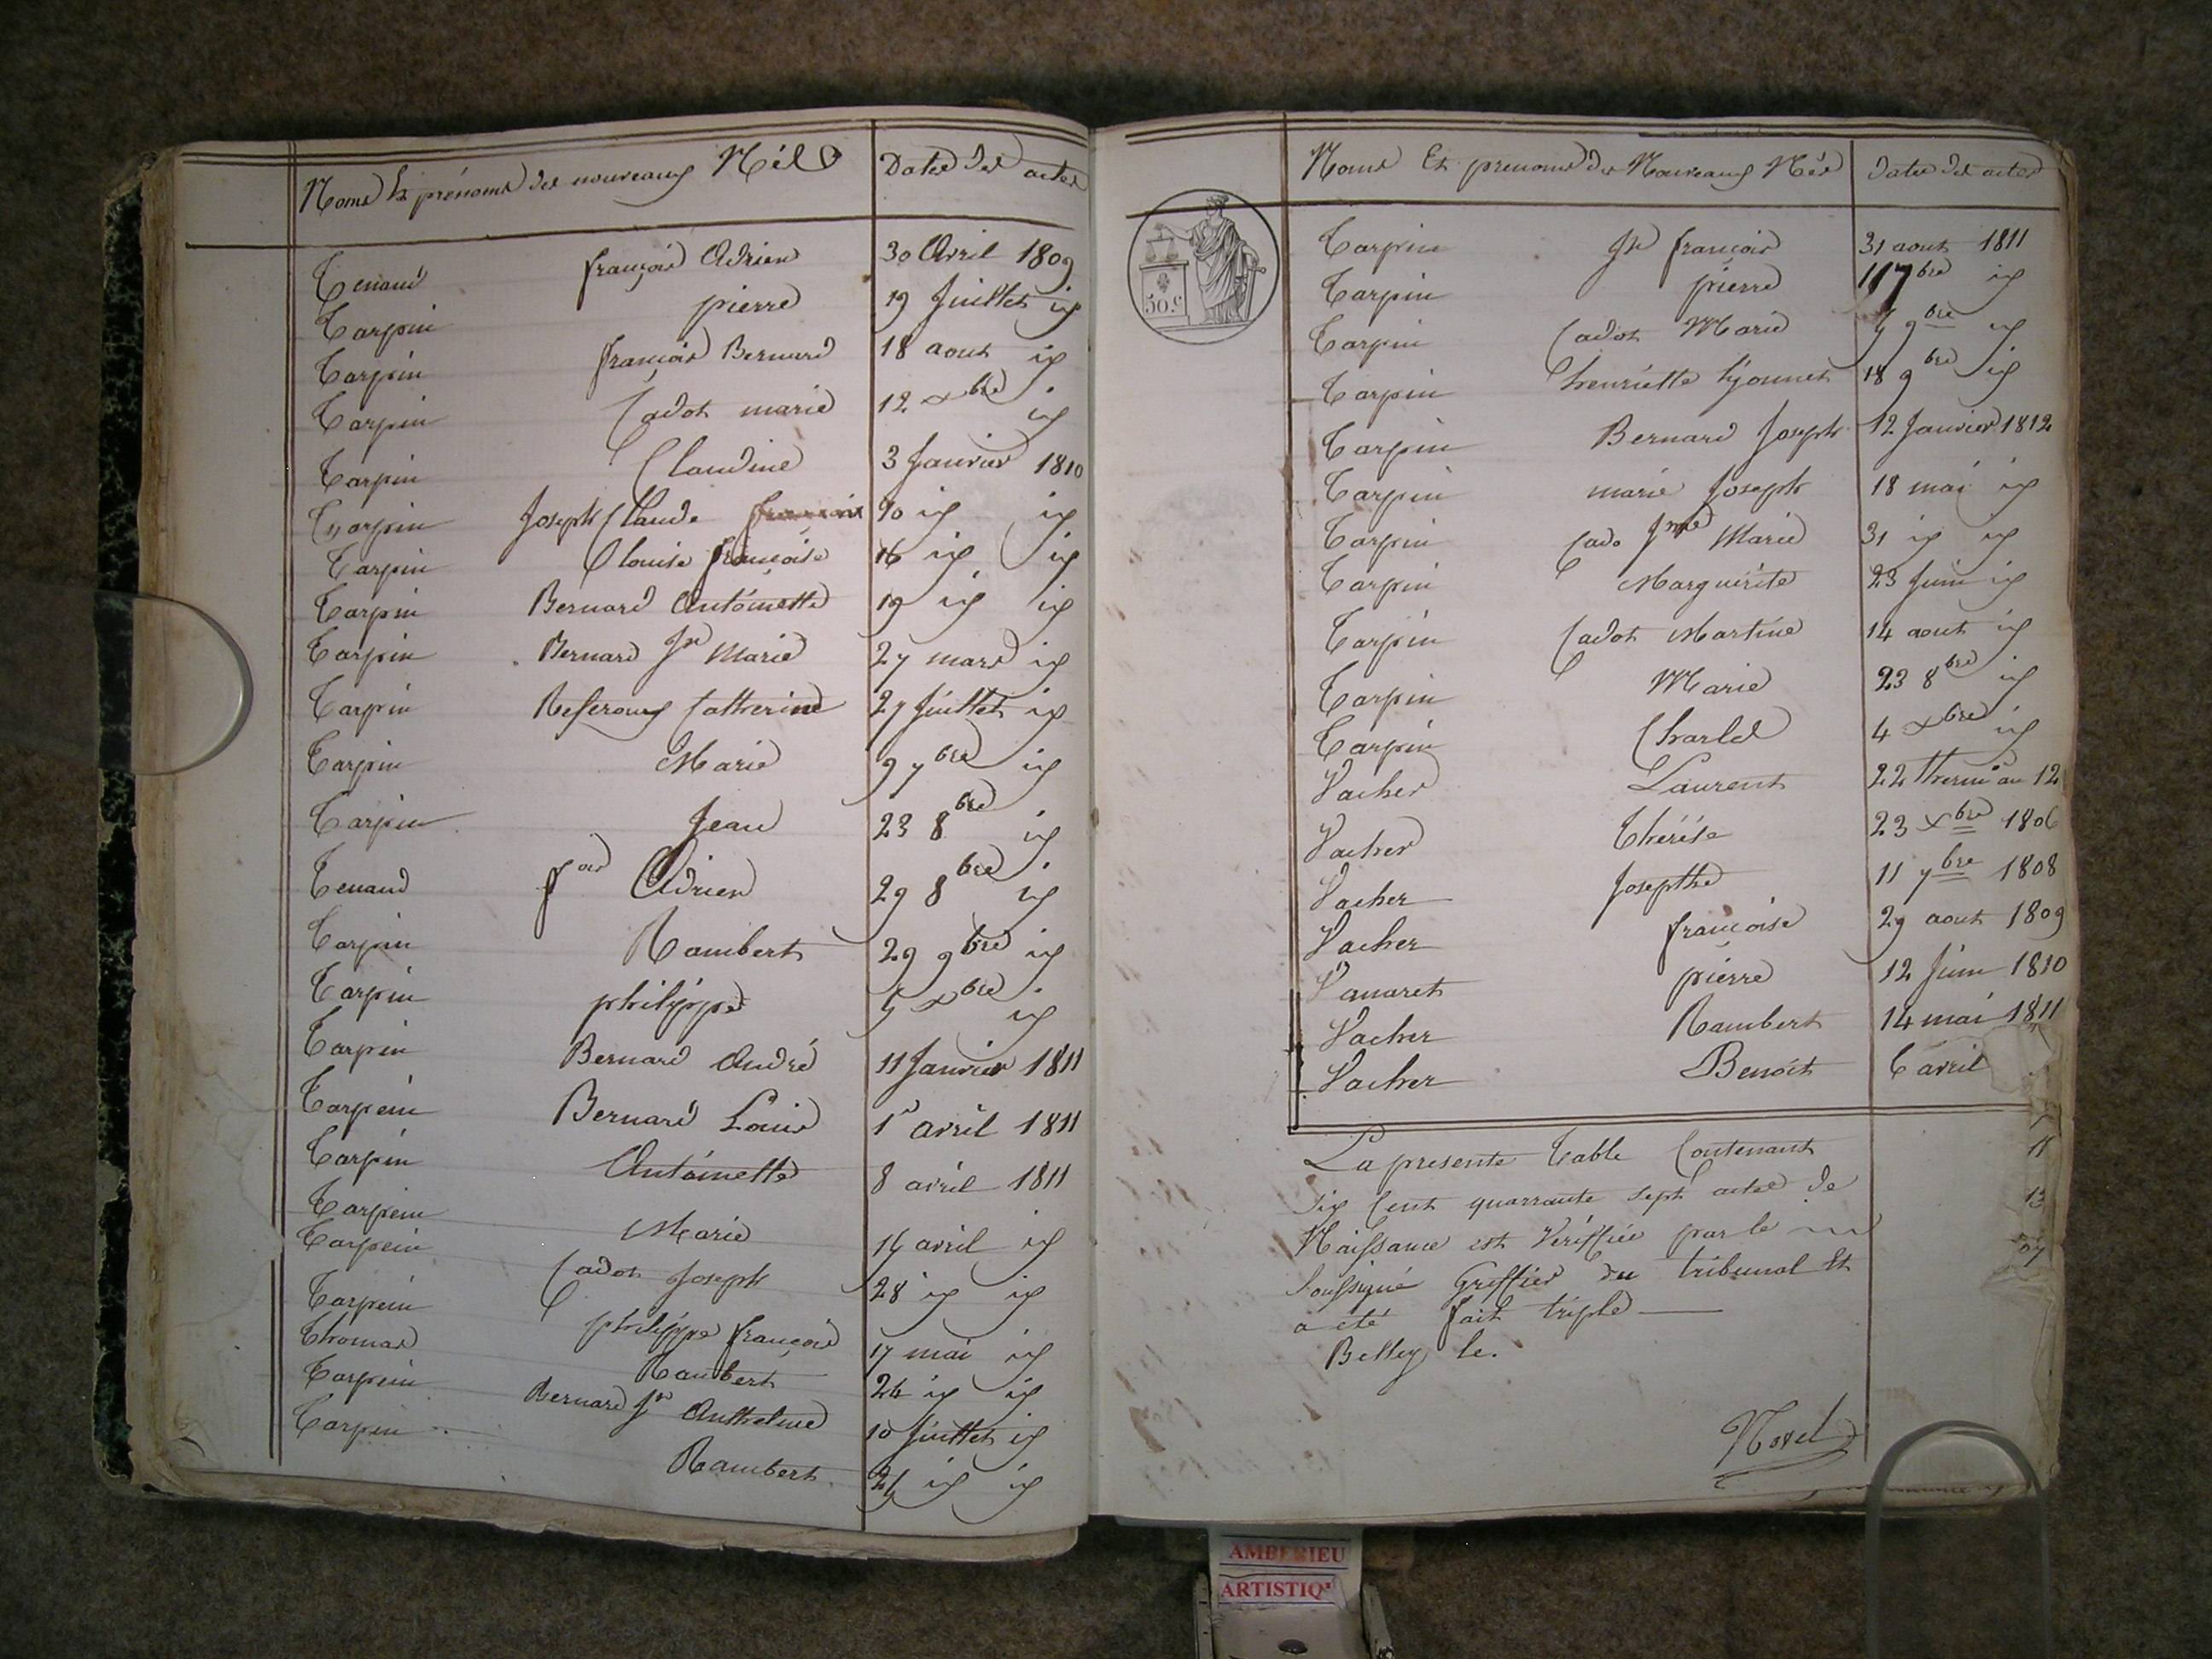 Noms et prénoms des nouveaux Nés Dates des actes
Tenand françois Adrien 30 Avril 1809
Tarpin pierre 19 Juillet id
Tarpin françois Bernard 18 aout id
Tarpin Cadot marie 12 xbre id
Tarpin Claudine 3 Janvier 1810
Tarpin Joseph Claude id id
Tarpin Louise françoise 16 id id
Tarpin Bernard Antoinette 19 id id
Tarpin Bernard Jn Marie 27 mars id
Tarpin Catherine 27 Juillet id
Tarpin Marie 9 7bre id
Tarpin Jean 23 8bre id
Tenand fois Adrien 29 8bre id
Tarpin Rambert 29 9bre id
Tarpin philippe 5 xbre id
Tarpin Bernard André 11 Janvier 1811
Tarpein Bernard Louis 1r avril 1811
Tarpin Antoinette 8 avril 1811
Tarpein Marie 14 avril id
Tarpein Cadot Joseph 28 id id
Tarpein philippe françois 17 mai id
Thomas Rambert 26 id id
Tarpein Bernard Jn Anthelme 10 Juillet id
Tarpin Rambert id id
Noms Et prenoms des Nouveaux Nés Dates des actes
50.c
Tarpin Jh françois 31 aout 1811
Tarpin pierre 11 7bre id
Tarpin Cadot Marie 5 9bre id
Tarpin henriette Lyonnet 18 9bre id
Tarpin Bernard Joseph 12 Janvier 1812
Tarpin marie Joseph 18 mai id
Tarpin Cado Marie 31 id id
Tarpin Marguérite 23 Juin id
Tarpin Cadot Martine 14 aout id
Tarpin Marie 23 8bre id
Tarpin Charles 4 xbre id
Vacher Laurent 22 therm an 12
Vacher Thérèse 23 xbre 1806
Vacher Josepthe 11 7bre 1808
Vacher françoise 29 aout 1809
Vanaret pierre 12 Juin 1810
Vacher Rambert 14 mai 1811
Vacher Benoit 6 avril
La presente Table Contenant
Six Cent quarrante sept actes de
Naissance est Vériffiée par le
Soussigné Greffier du tribunal Et
a été fait triple
Belley le.
Morel
11
13
AMBERIEU
ARTISTIQ